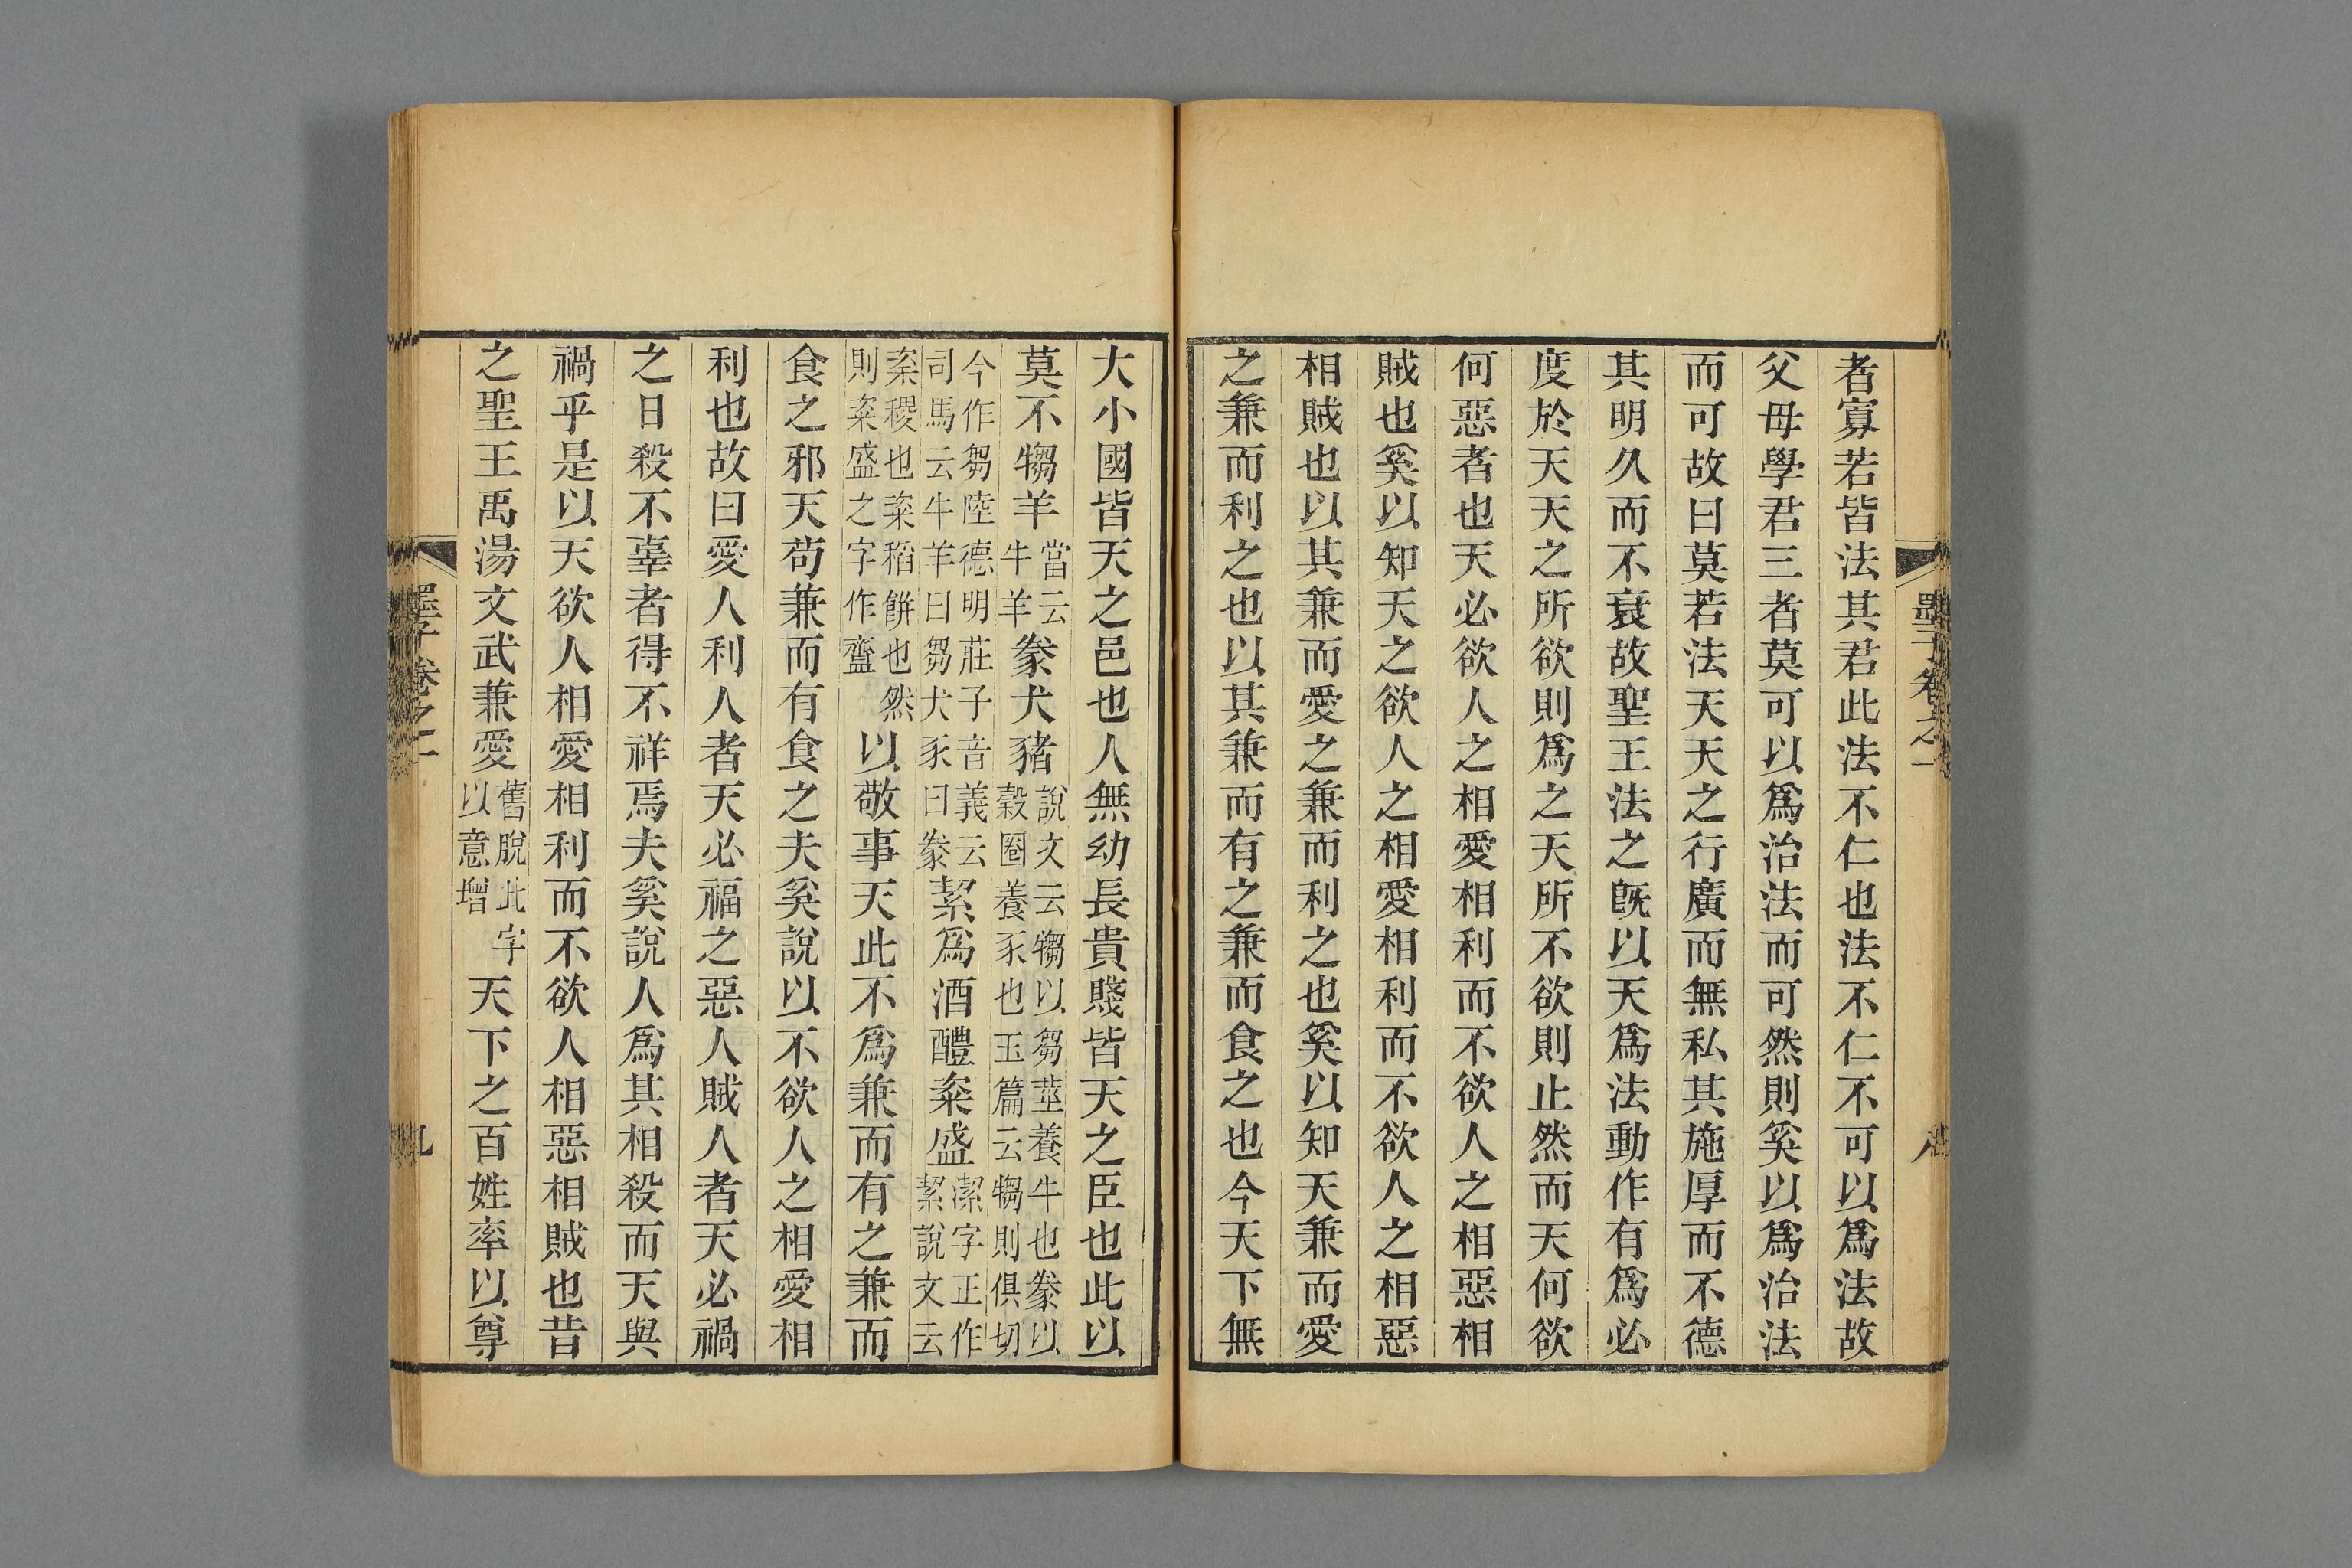 墨子卷之一
八
者寡若皆法其君此法不仁也法不仁不可以爲法故
父母學君三者莫可以爲治法而可然則奚以爲治法
而可故曰莫若法天天之行廣而無私其施厚而不德
其明久而不衰故聖王法之旣以天爲法動作有爲必
度於天天之所欲則爲之天所不欲則止然而天何欲
何惡者也天必欲人之相愛相利而不欲人之相惡相
賊也奚以知天之欲人之相愛相利而不欲人之相惡
相賊也以其兼而愛之兼而利之也奚以知天兼而愛
之兼而利之也以其兼而有之兼而食之也今天下無
大小國皆天之邑也人無幼長貴賤皆天之臣也此以
莫不犓羊當云牛羊豢犬豬說文云犓以芻莖養牛也豢以穀圈養豕也玉篇云犓則俱切
今作芻陸德明莊子音義云司馬云牛羊曰芻犬豕曰豢絜爲酒醴粢盛潔字正作絜說文云
齋稷也粢稻餠也然則粢盛之字作齍以敬事天此不爲兼而有之兼而
食之邪天苟兼而有食之夫奚說以不欲人之相愛相
利也故曰愛人利人者天必福之惡人賊人者天必禍
之日殺不辜者得不祥焉夫奚說人爲其相殺而天與
禍乎是以天欲人相愛相利而不欲人相惡相賊也昔
之聖王禹湯文武兼愛舊脫此字以意增天下之百姓率以尊
墨子卷之一
九